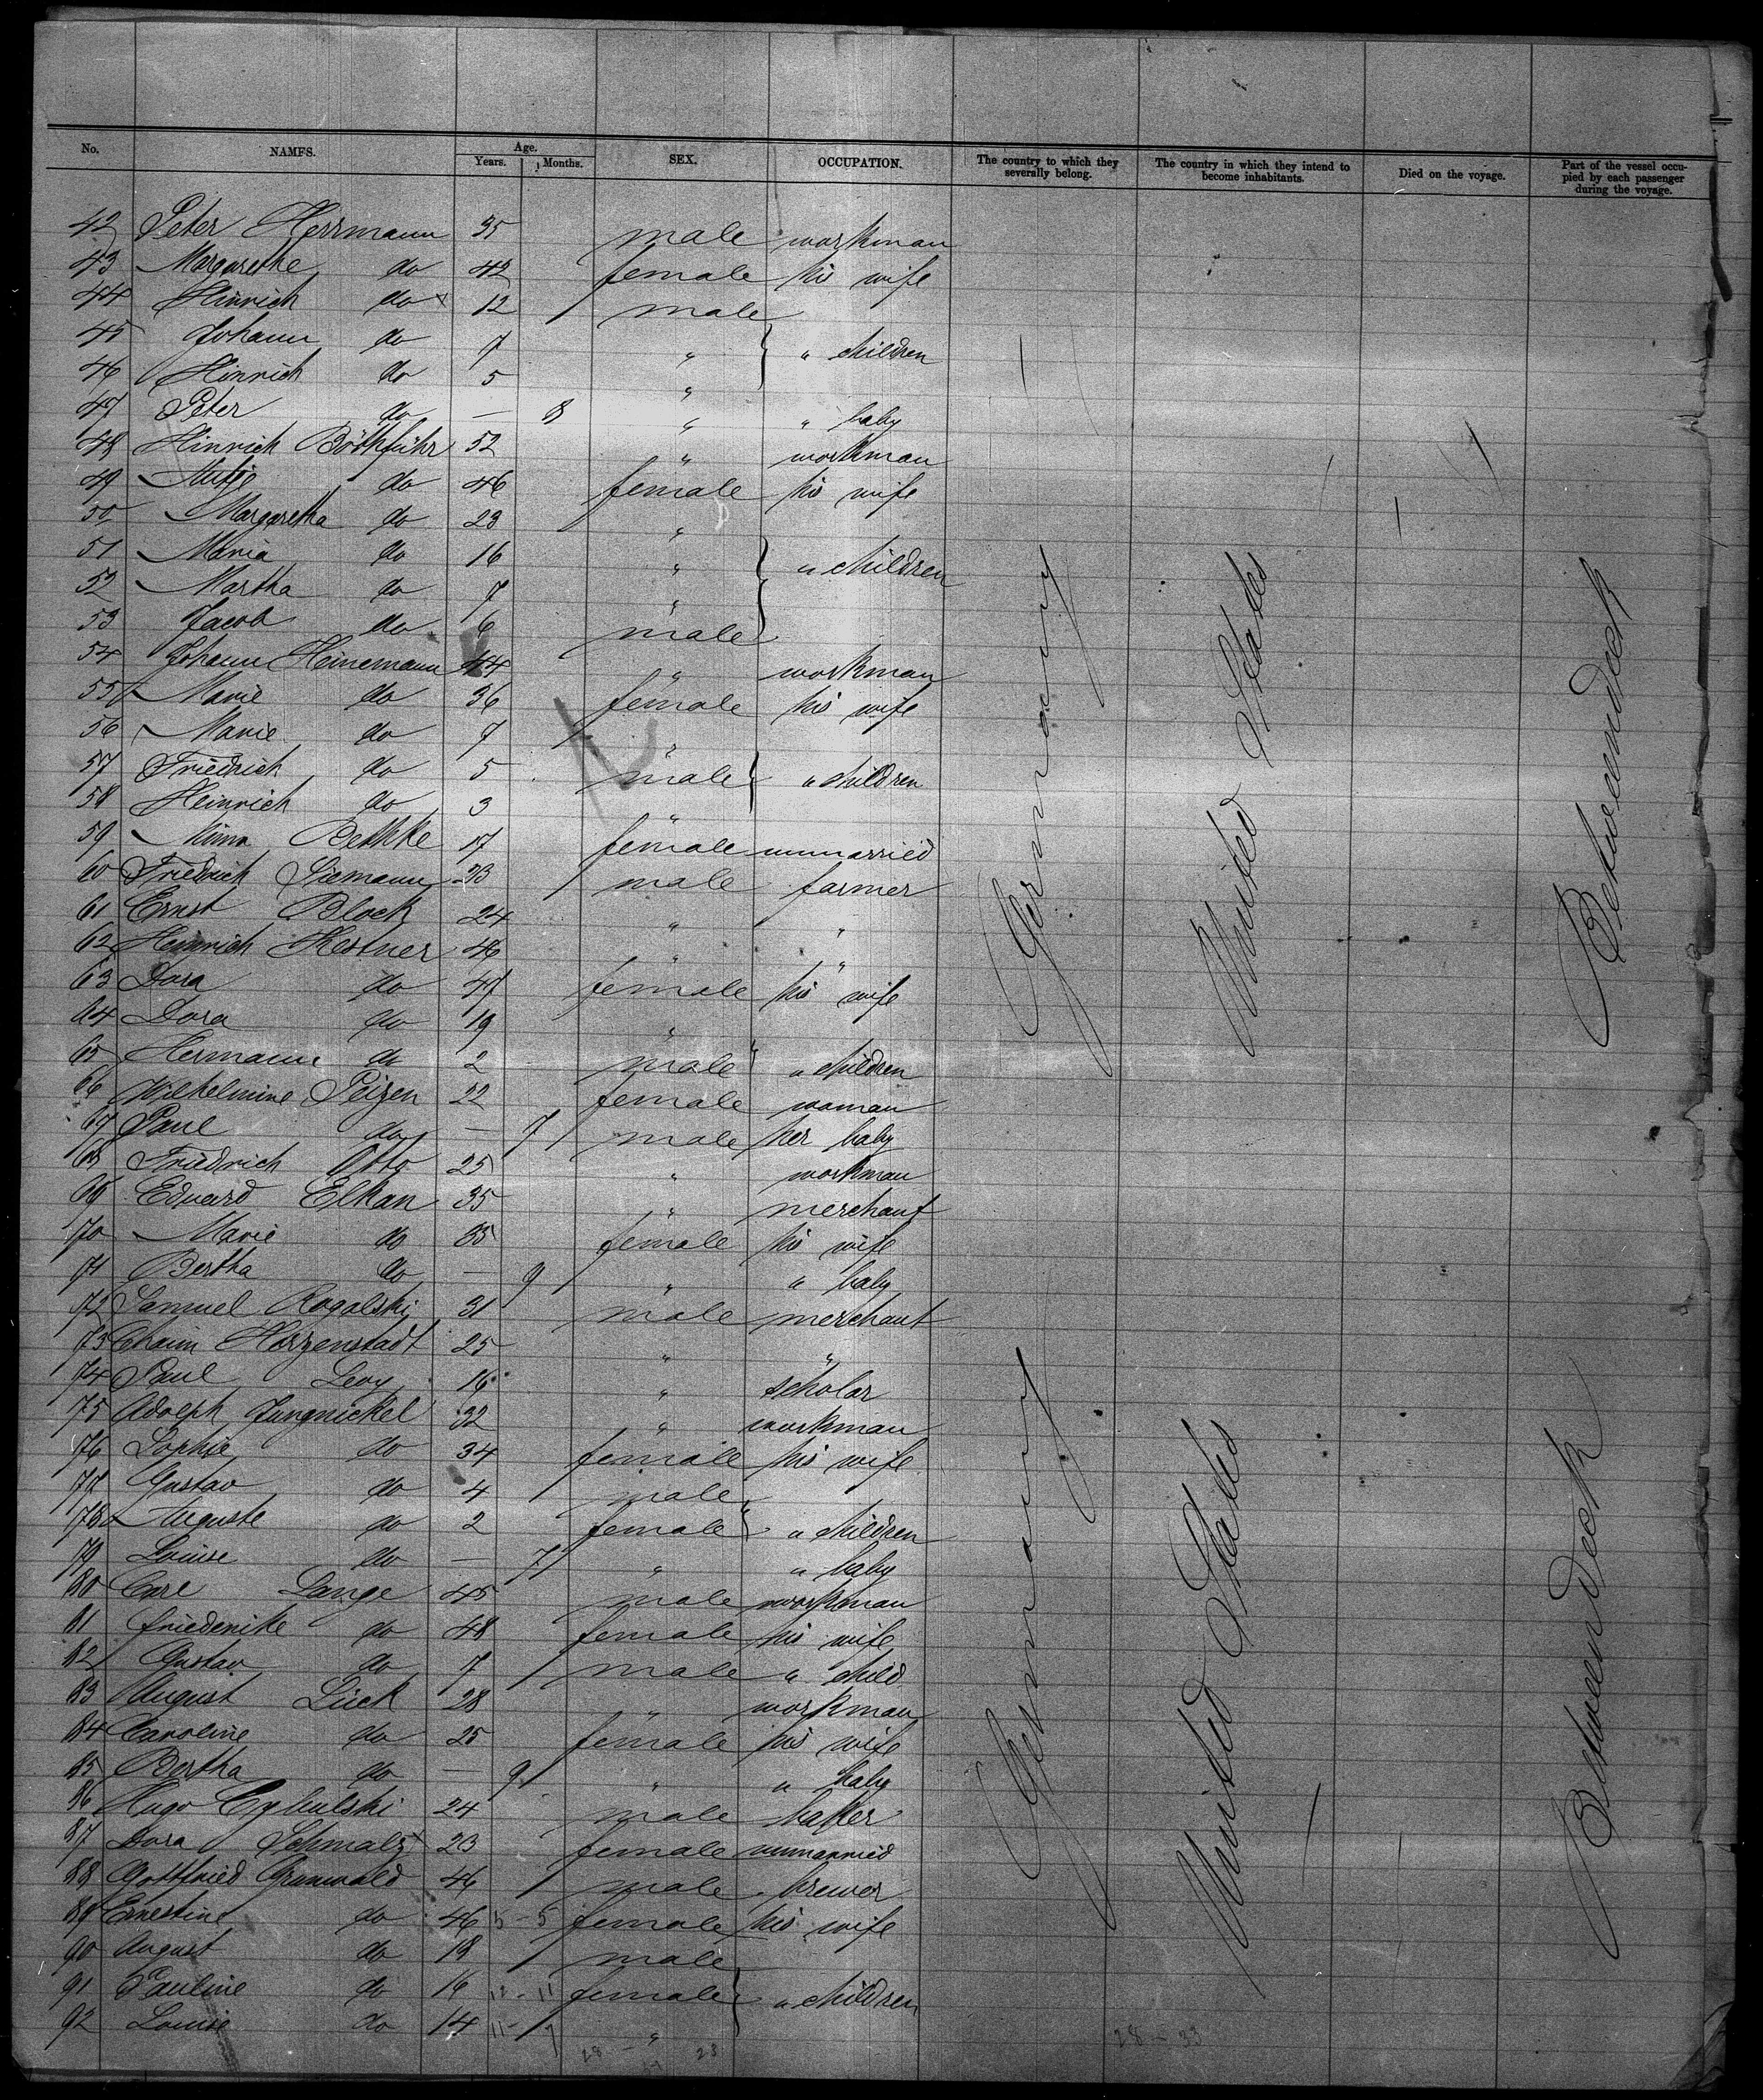 No. NAMES. Age. Years. Months. SEX. OCCUPATION. The country to which they severally belong. The country in which they intend to become inhabitants. Died on the voyage. Part of the vessel occupied by each passenger during the voyage.
42 Peter Herrmann 35 male workman
43 Margarethe do 42 female his wife
44 Hinrich do 12 male
45 Johann do 7 " " children
46 Hinrich do 5 "
47 Peter do — 8 " " baby
48 Hinrich Böthführ 52 " workman
49 do 46 female his wife
50 Margaretha do 23 "
51 Maria do 16 " " children
52 Martha do 7 "
53 Jacob do 6 male
54 Johann Heinemann 44 " workman
55 Marie do 36 female his wife
56 Marie do 7 "
57 Friedrich do 5 male " children
58 Heinrich do 3 "
59 Bethke 17 female unmarried
60 Friedrich Siemann 23 male farmer
61 Ernst Block 24 " "
62 Heinrich Kestner 46 " "
63 Dora do 47 female his wife
64 Dora do 19 "
65 Hermann do 2 male " children
66 Wilhelmine Peizen 22 female woman
67 Paul do — 7 male her baby
68 Friedrich Otto 25 " workman
69 Eduard Elkan 35 " merchant
70 Marie do 35 female his wife
71 Bertha do — 9 " " baby
72 Samuel Rogalski 31 male merchant
73 Chaim Herzenstadt 25 " "
74 Paul Levy 16 " scholar
75 Adolph Jungnickel 32 " workman
76 Sophie do 34 female his wife
77 Gustav do 4 male
78 Auguste do 2 female " children
79 Louise do — 7 " " baby
80 Carl Lange 45 male workman
81 Friederike do 48 female his wife
82 Gustav do 7 male " child
83 August Lück 28 " workman
84 Caroline do 25 female his wife
85 Bertha do — 9 " " baby
86 Hugo Cybulski 24 male baker
87 Dora Schmalz 23 female unmarried
88 Gottfried Grunwald 46 male brewer
89 Ernestine do 46 5 - 5 female his wife
90 August do 18 male
91 Pauline do 16 12 - 11 female " children
92 Louise do 14 11 - 7 "
28 - 33
Germany
United States
Betweendeck
Germany
United States
Betweendeck